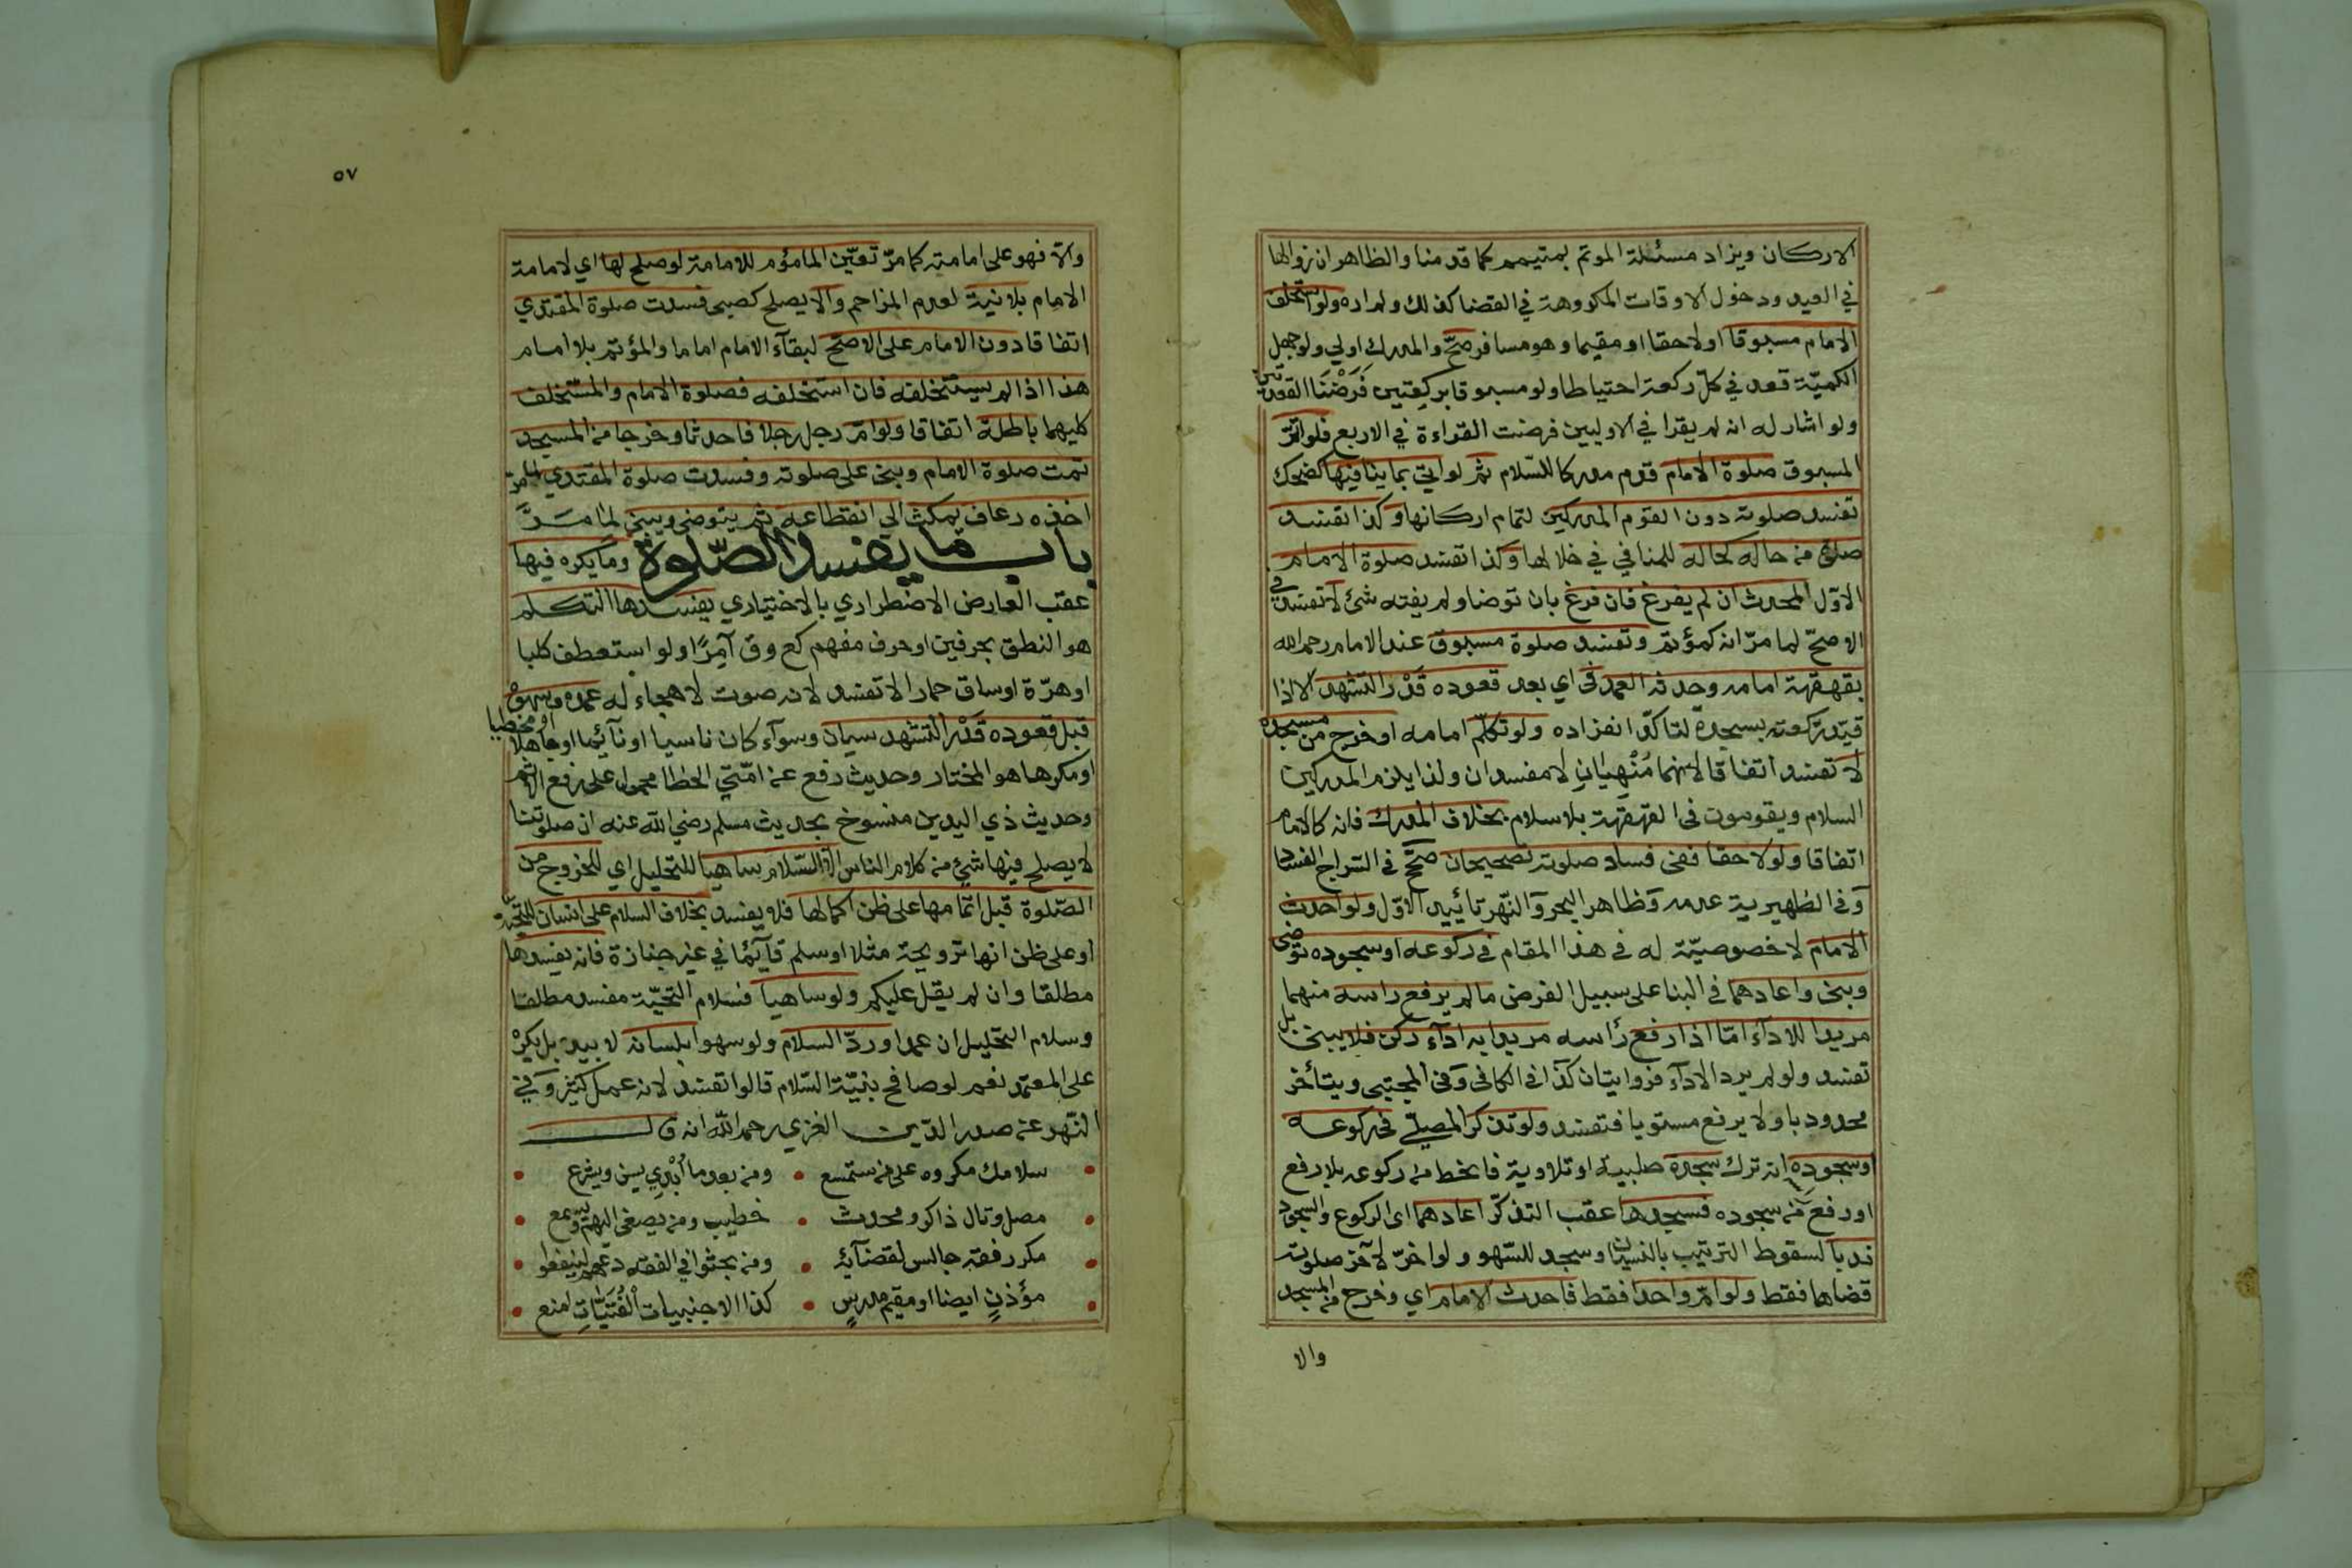 الاركان ويزاد مسئلة الموتم بمتيمم كما قدمنا والظاهر ان زوالها
في العيد ودخول الاوقات المكروهة في القضا كذلك ولم اره ولو استخلف
الامام مسبوقا او لاحقا او مقيما وهو مسافر صحّ والمدرك اولي ولو جهل
الكميّة قعد في كلّ ركعة احتياطا ولو مسبوقا بركعتين فَرَضْنَا القعدتين
ولو اشار له انه لم يقرا في الاوليين فرضت القراءة في الاربع فلو اتمّ
المسبوق صلوة الامام قدم مدركا للسّلام ثمّ لو اتي بما ينافيها كضحك
تفسد صلوته دون القوم المدركين لتمام اركانها وكذا تفسد
صلوة من حاله كحاله للمنافي في خلالها وكذا تفسد صلوة الامام
الاوّل المحدث ان لم يفرغ فان فرغ بان توضا ولم يفته شئ لا تفسد في
الاصحّ لما مرّ انه كمؤتم وتفسد صلوة مسبوق عند الامام رحمه الله
بقهقهة امامه وحدثه العمد في اي بعد قعوده قَدْرَ التشهد الا اذا
قيّد ركعته بسجدة لتاكّد انفراده ولو تكلّم امامه او خرج من مسجده
لا تفسد اتفاقا لانهما مُنْهِيَانِ لا مفسدان ولذا يلزم المدركين
السلام ويقومون في القهقهة بلا سلام بخلاف المدرك فانه كالامام
اتفاقا ولو لاحقا ففي فساد صلوته تصحيحان صحّح في السّراج الفساد
وَفي الظهيرية عدمه وَظاهر البحر وَالنّهر تاييد الاوّل ولو احدث
الامام لا خصوصيّة له في هذا المقام في ركوعه او سجوده توضى
وبنى واعادهما في البنا على سبيل الفرض ما لم يرفع راسه منهما
مريدا للاداء امّا اذا رفع رأسه مريدا به اداء ركن فلا يبنى بل
تفسد ولو لم يرد الاداء فروايتان كذا في الكافي وَفي المجتبى ويتأخر
محدودبا ولا يرفع مستويا فتفسد ولو تذكر المصلّي في ركوعه
او سجوده انه ترك سجدة صلبية او تلاوية فانحط من ركوعه بلا رفع
او رفع من سجوده فسجدها عقب التذكّر اعادهما اى الركوع والسجود
ندبا لسقوط الترتيب بالنسيان وسجد للسّهو ولو اخرّ لاخر صلوته
قضاها فقط ولو امّ واحدا فقط فاحدث الامام اي وخرج من المسجد
والا
٥٧
والّا فهو على امامته كما مرّ تعيّن المامؤم للامامة لو صلح لها اي لامامة
الامام بلا نية لعدم المزاحم والا يصلح كصبى فسدت صلوة المقتدي
اتفاقا دون الامام على الاصحّ لبقآء الامام اماما والمؤتم بلا امام
هذا اذا لم يستخلفه فان استخلفه فصلوة الامام والمستخلف
كليهما باطلة اتفاقا ولو امّ رجل رجلا فاحدثا وخرجا من المسجد
تمت صلوة الامام وبنى على صلوته وفسدت صلوة المقتدي لما مرّ
اخذه رعاف يمكث الي انقطاعه ثم يتوضى ويبنى لِمَا مَرَّ
باب ما يفسد الصّلوة وما يكره فيها
عقب العارض الاضطراري بالاختياري يفسدها التكلم
هو النطق بحرفين او حرف مفهم كع وق آمِرًا ولو استعطف كلبا
او هرّة او ساق حمارا لا تفسد لانه صوت لا هجاء له عمده وسهوه
قبل قعوده قَدْرَ التشهد سيان وسوآء كان ناسيا او نآئما او جاهلا او مخطيا
او مكرها هو المختار وحديث رفع عن امّتي الخطا محمول على رفع الاثم
وحديث ذي اليدين منسوخ بحديث مسلم رضي الله عنه ان صلوتنا
لا يصلح فيها شئ من كلام الناس الّا السّلام ساهيا للتحليل اي للخروج من
الصّلوة قبل اتمامها على ظن اكمالها فلا يفسد بخلاف السلام على انسان للتحيّة
او على ظن انها ترويحة مثلا او سلم قآئما في غير جنازة فانه يفسدها
مطلقا وان لم يقل عليكم ولو ساهيا فسلام التحيّة مفسد مطلقا
وسلام التحليل ان عمدا وردّ السلام ولو سهوا بلسانه لا بيده بل يكره
على المعتمد نعم لو صافح بنيّة السّلام قالوا تفسد لانه عمل كثير وَفي
النّهر عن صدر الدّين الغزي رحمه اللّه انه قال
سلامك مكروه على من ستسمع • ومن بعد ما أُبْدِي يسن ويشرع
مصل وتال ذاكر ومحدث • خطيب ومن يصغى اليهم ويسمع
مكرر فقه جالس لقضآئه • ومن بحثوا في الفقه دعهم لينفعوا
مؤذنٍ ايضا او مقيم مدرسٍ • كذا الاجنبيات الْفُتَيَّاتِ امنع